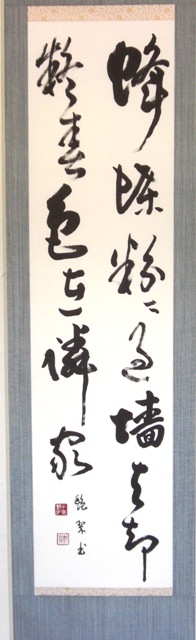 蜂蝶紛〻過墻去却
疑春色在隣家
書